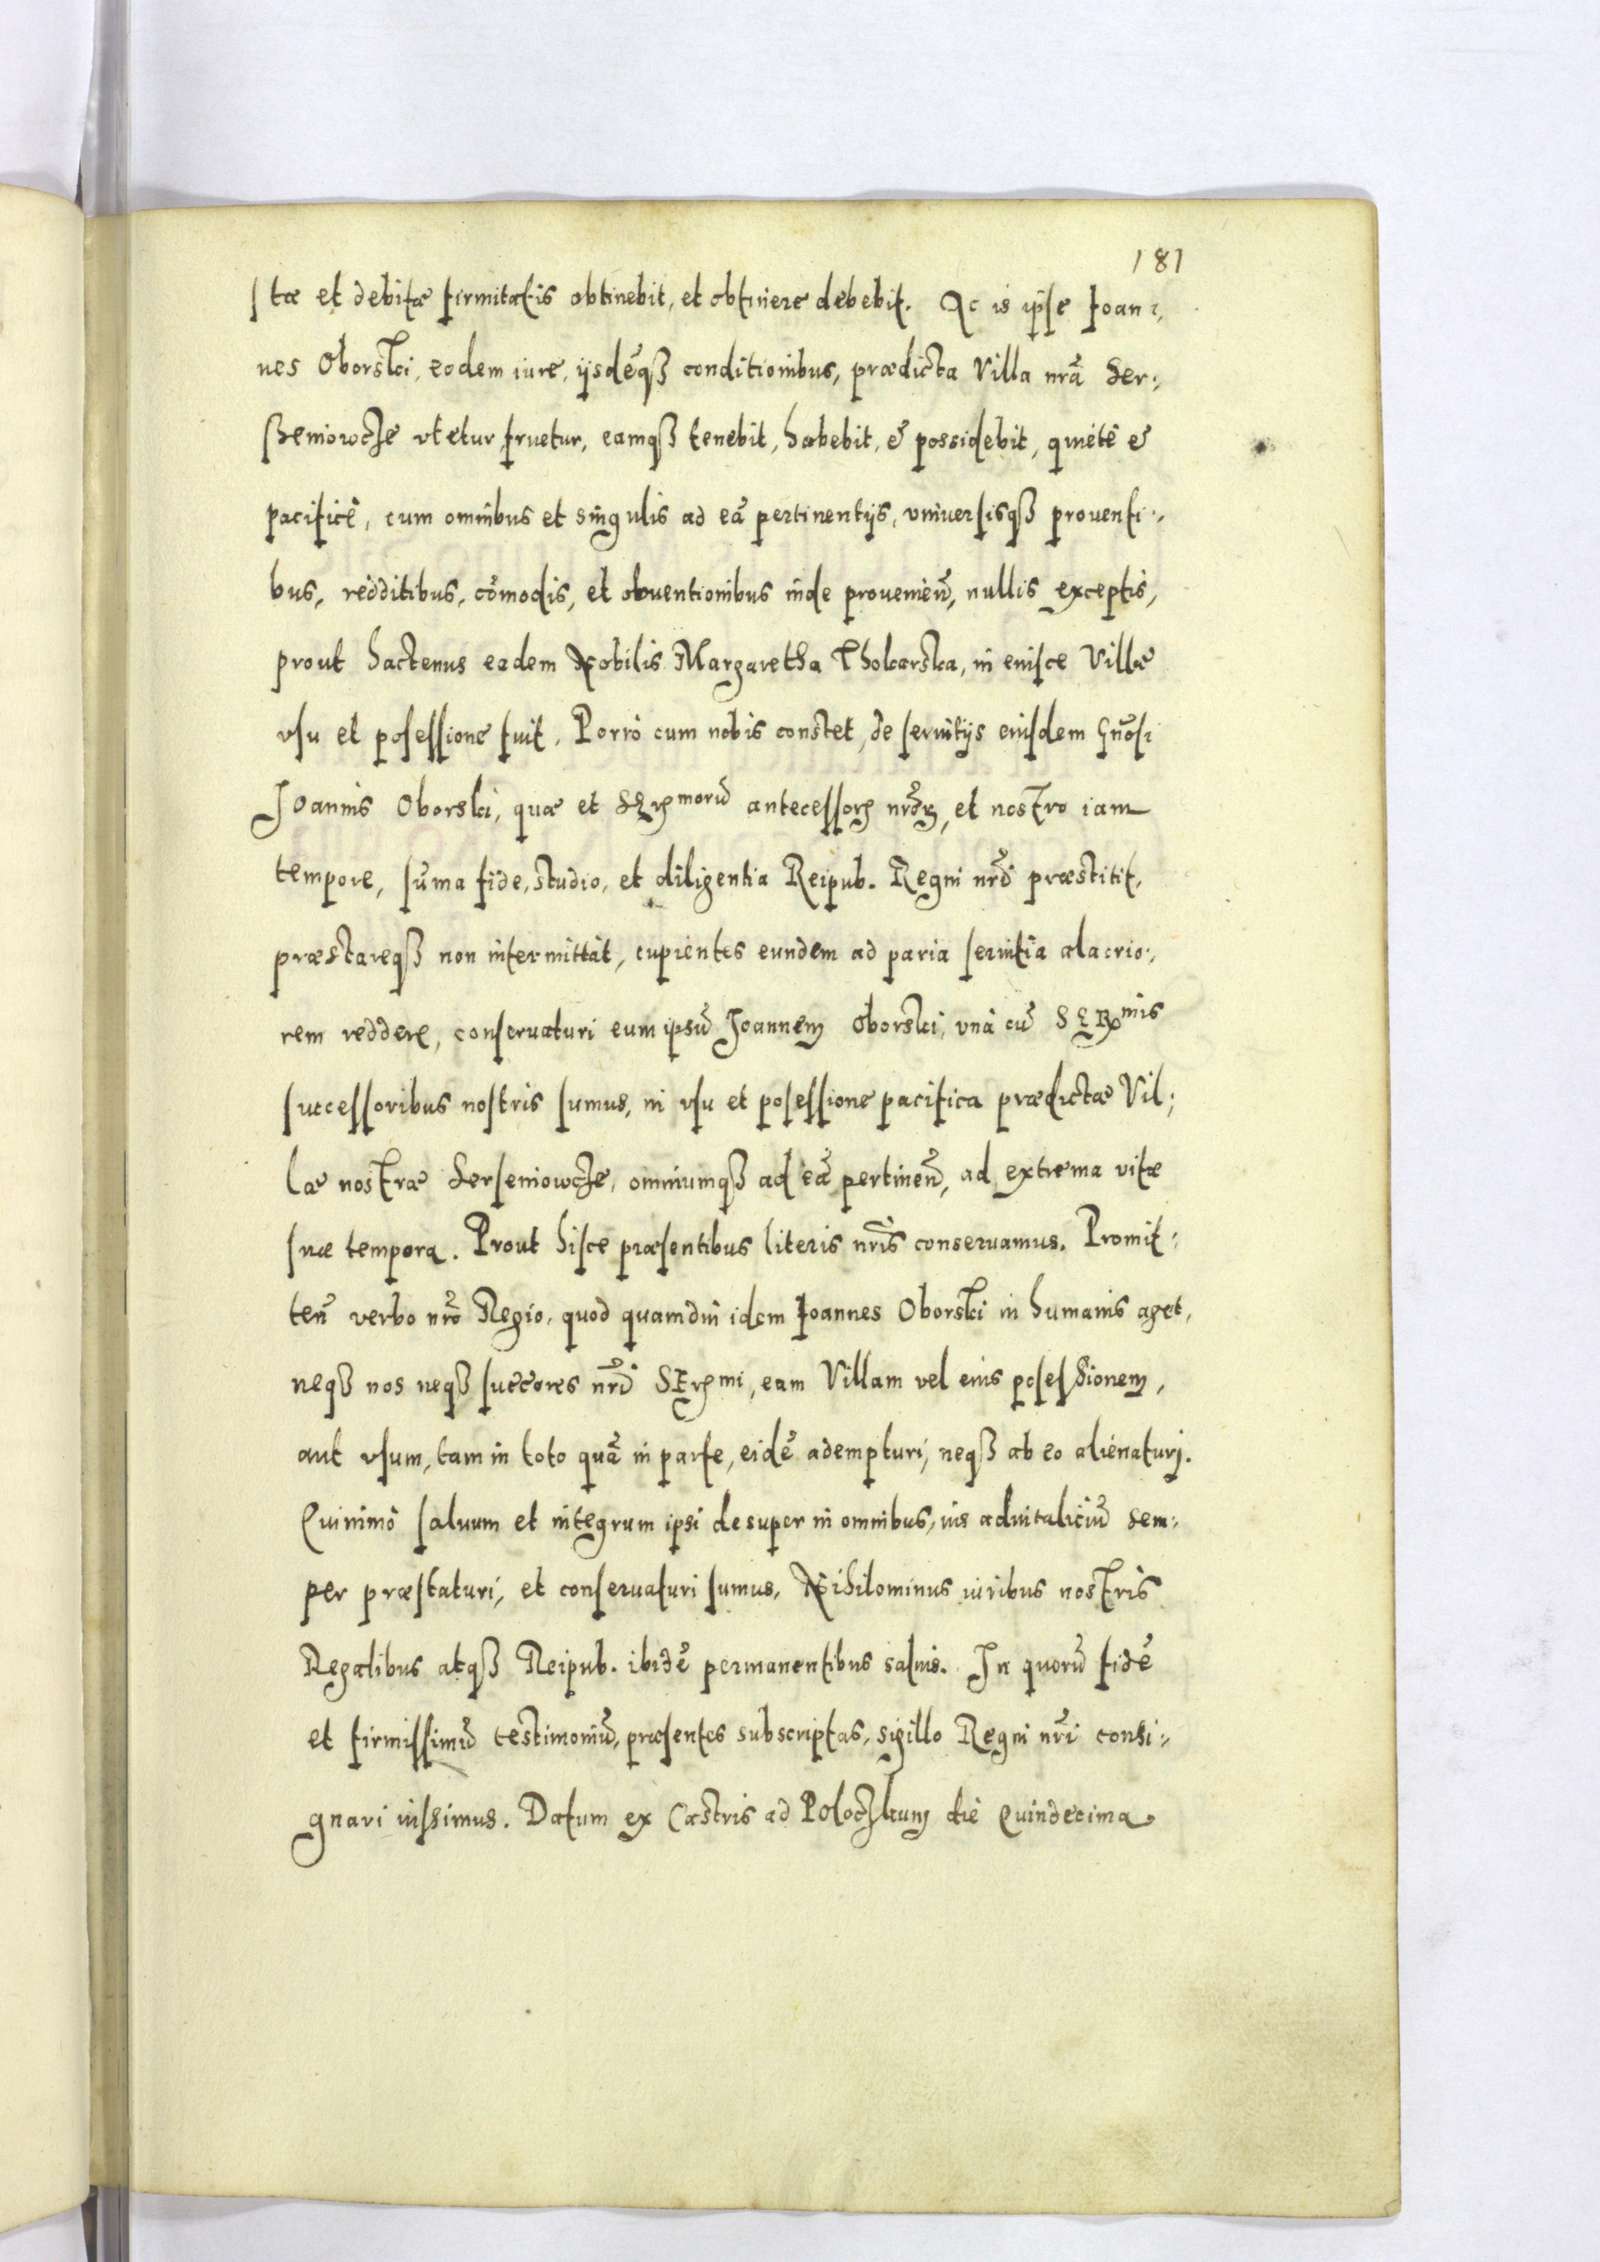 181
stæ et debitæ firmitatis obtinebit, et obtinere debebit. Ac is ipse Ioan:,
nes Oborski, eodem iure, ijsdẽqꝫ conditionibus, prædicta Villa nrã Ser:,
ßeniowcze vtetur fruetur, eamqꝫ tenebit, habebit, & possidebit, quietè &
pacificè, cum omnibus et singulis ad eã pertinentijs, vniuersisqꝫ prouenti:,
bus, redditibus, cõmodis, et obuentionibus inde prouenieñ, nullis exceptis,
prout hactenus eadem Nobilis Margaretha Tholarska, in eiusce Villæ
vsu et posessione fuit. Porrò cum nobis constet, de seruitijs eiusdem Gñosi
Joannis Oborski, quæ et SERꝫmorũ antecessorꝫ nrõrꝫ, et nostro iam
tempore, sũma fide, studio, et diligentia Reipub. Regni nrĩ præstitit,
præstareqꝫ non intermittit, cupientes eundem ad paria seruitia alacrio:,
rem reddere, conseruaturi eum ipsũ Joannem Oborski, vnà cũ SERꝫmis
successoribus nostris sumus, in vsu et posessione pacifica prædictæ Vil:,
læ nostræ Serseniowcze, omniumqꝫ ad eã pertineñ, ad extrema vitæ
suæ tempora. Prout hisce præsentibus literis nrĩs conseruamus. Promit:,
teñ verbo nrõ Regio, quod quamdiu idem Ioannes Oborski in humanis aget,
neqꝫ nos neqꝫ succores nrĩ SERꝫmi, eam Villam vel eius posessionem,
aut vsum, tam in toto quã in parte, eidẽ adempturi, neqꝫ ab eo alienaturj.
Quinimò saluum et integrum ipsi desuper in omnibus, ius aduitaliciũ sem:,
per præstaturi, et conseruaturi sumus. Nihilominus iuribus nostris
Regalibus atqꝫ Reipub. ibidẽ permanentibus saluis. In quorũ fidẽ
et firmissimũ testimoniũ, præsentes subscriptas, sigillo Regni nrĩ consi:,
gnari iussimus. Datum ex Castris ad Poloczkum die Quindecima